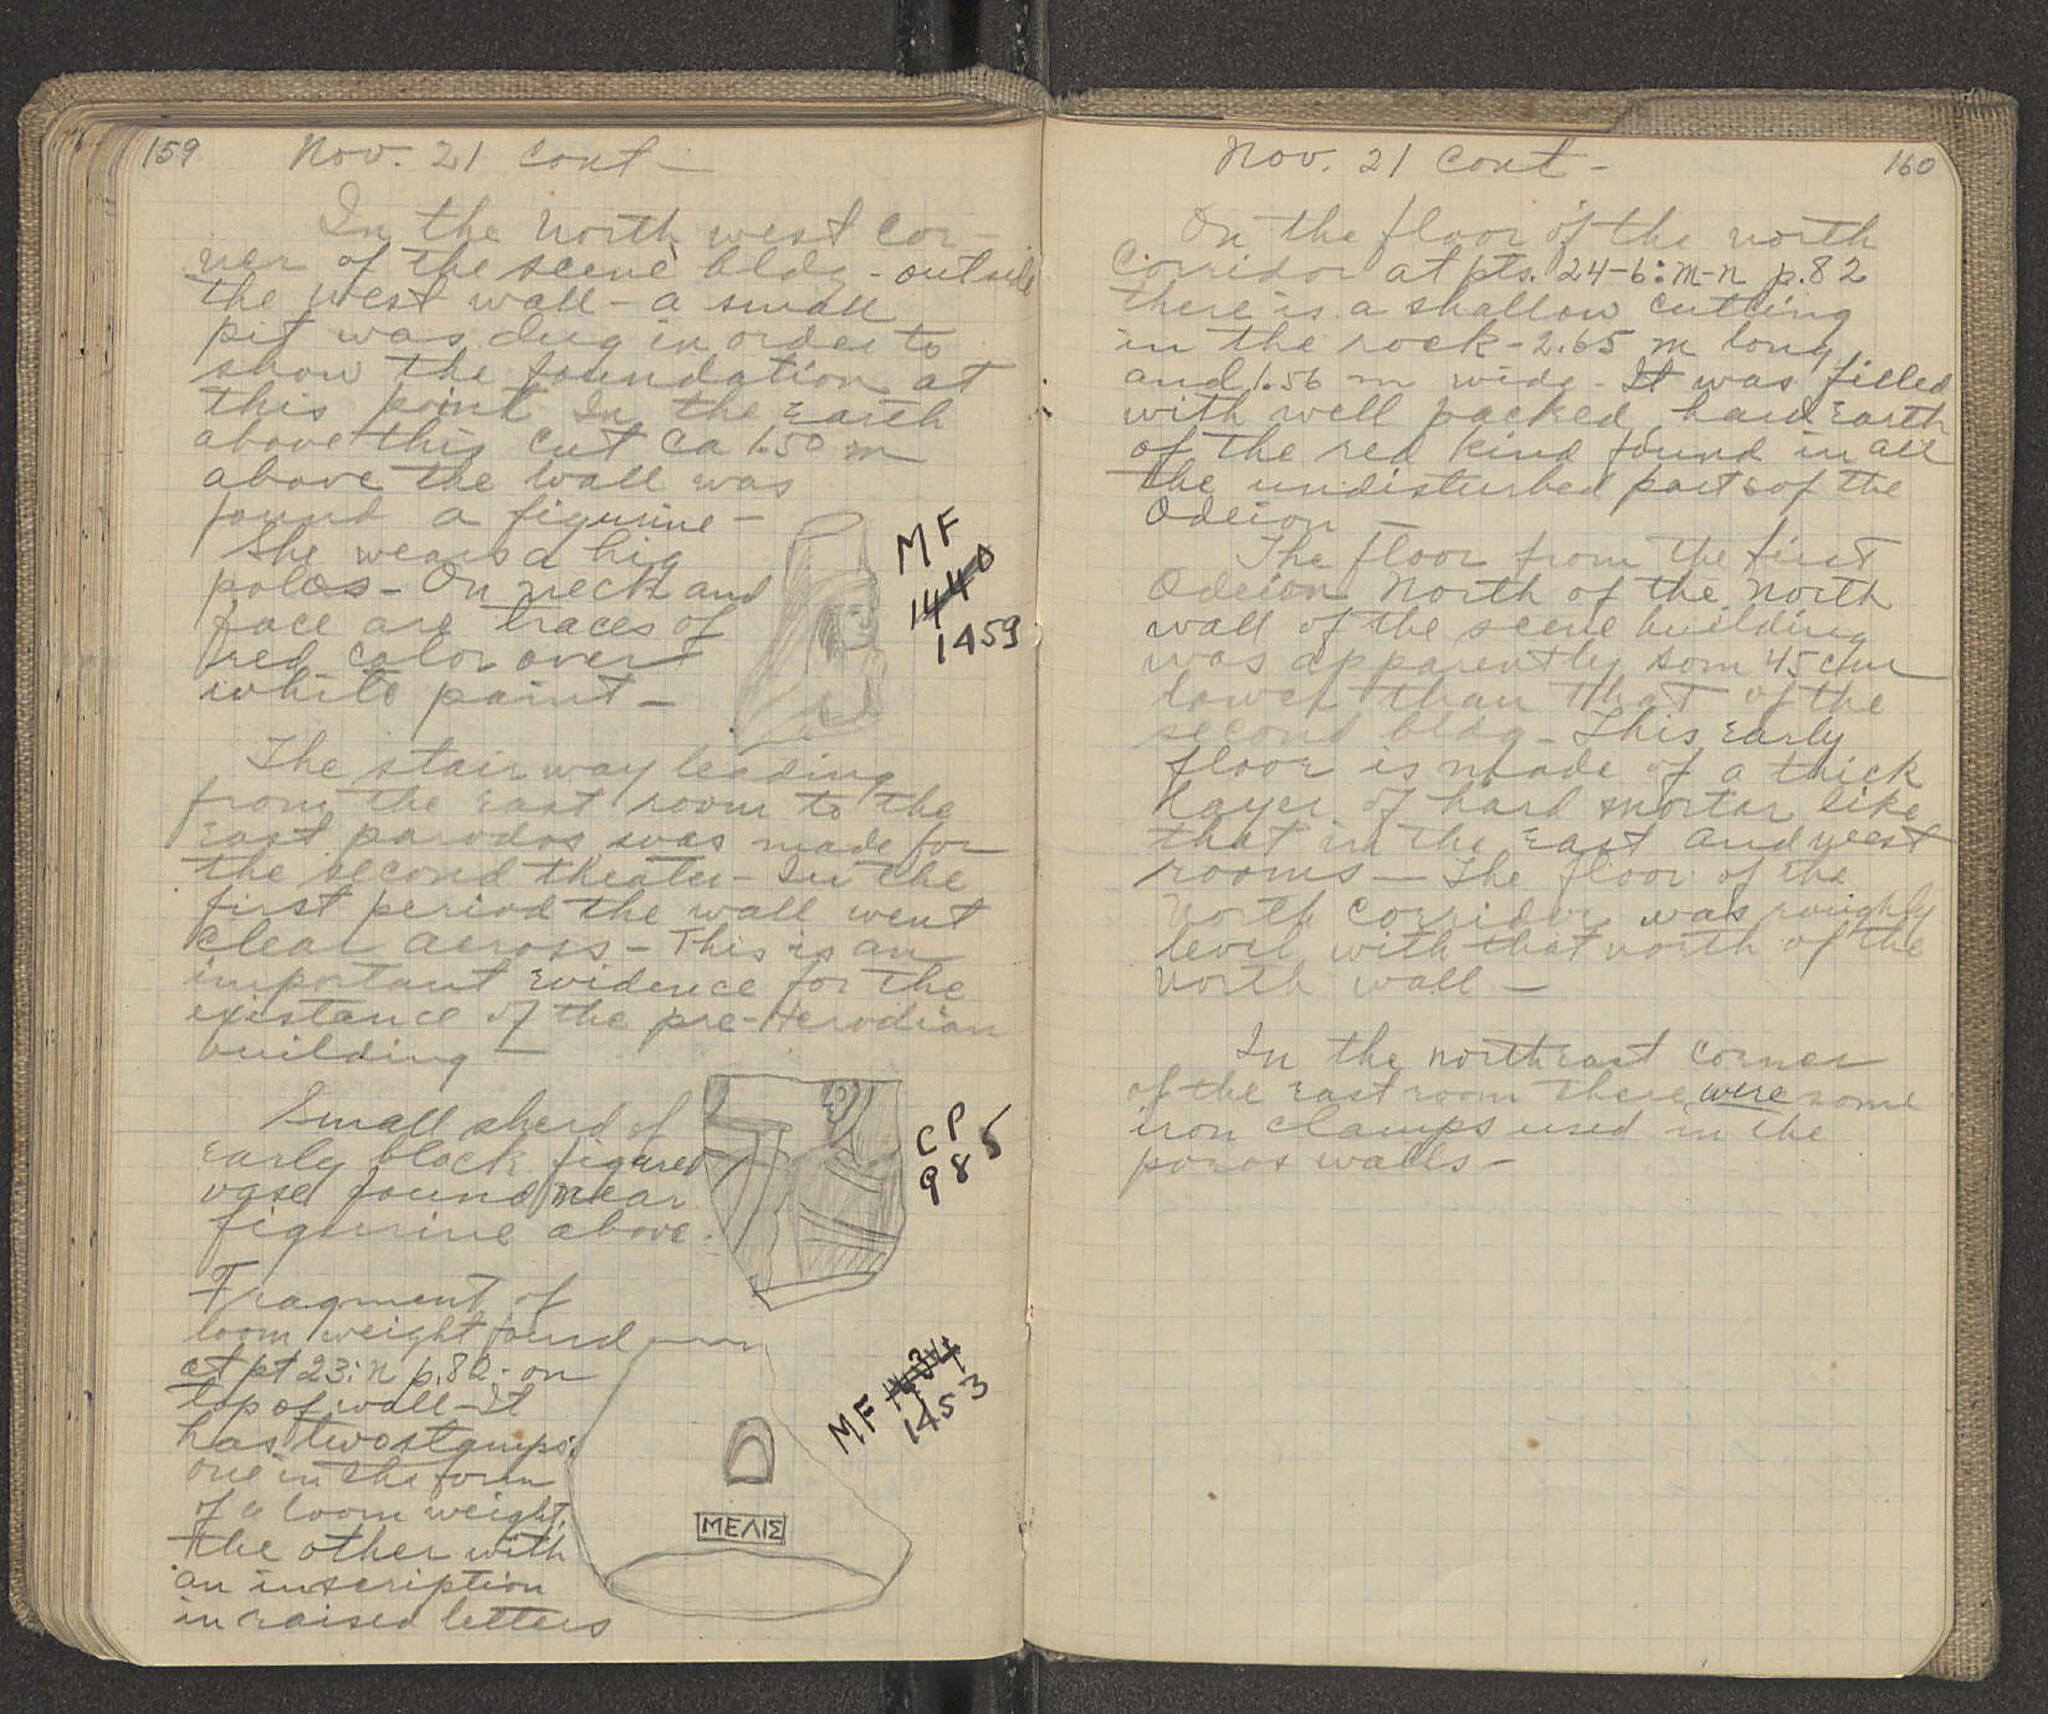 159
Nov. 21 cont –
In the North west cor-
ner of the scene bldg - outside
the west wall – a small
pit was dug in order to
show the foundation at
this point In the earth
above this cut ca 1.50 m
above the wall was
found a figurine –
She wears a hig
polos – On neck and
face are traces of
red color over
white paint –
MF
1440
1459
The stairway leading
from the east room to the
East parodos was made for
the second theater – In the
first period the wall went
clear across – This is an
important evidence for the
existance of the pre-Herodian
building –
Small sherd of
early black figured
vase found near
figurine above.
CP
985
Fragment of
loom weight found
at pt 23:n p.82 – on
top of wall – It
has two stamps:
one in the form
of a loom weight,
the other with
an inscription
in raised letters
MF
1453
ΜΕΛΙΣ
160
Nov. 21 cont –
On the floor of the north
Corridor at pts. 24-6:m-n p.82
there is a shallow cutting
in the rock – 2.65 m long
and 1.56 m wide – It was filled
with well packed, hard earth
of the red kind found in all
the undisturbed parts of the
Odeion –
The floor from the first
Odeion North of the North
wall of the scene building
was apparently som 45 cm
lower than that of the
second bldg – This early
floor is made of a thick
layer of hard mortar like
that in the east and west
rooms – The floor of the
North corridor was roughly
level with that north of the
north wall –
In the northeast corner
of the east room there were some
iron clamps used in the
poros walls –